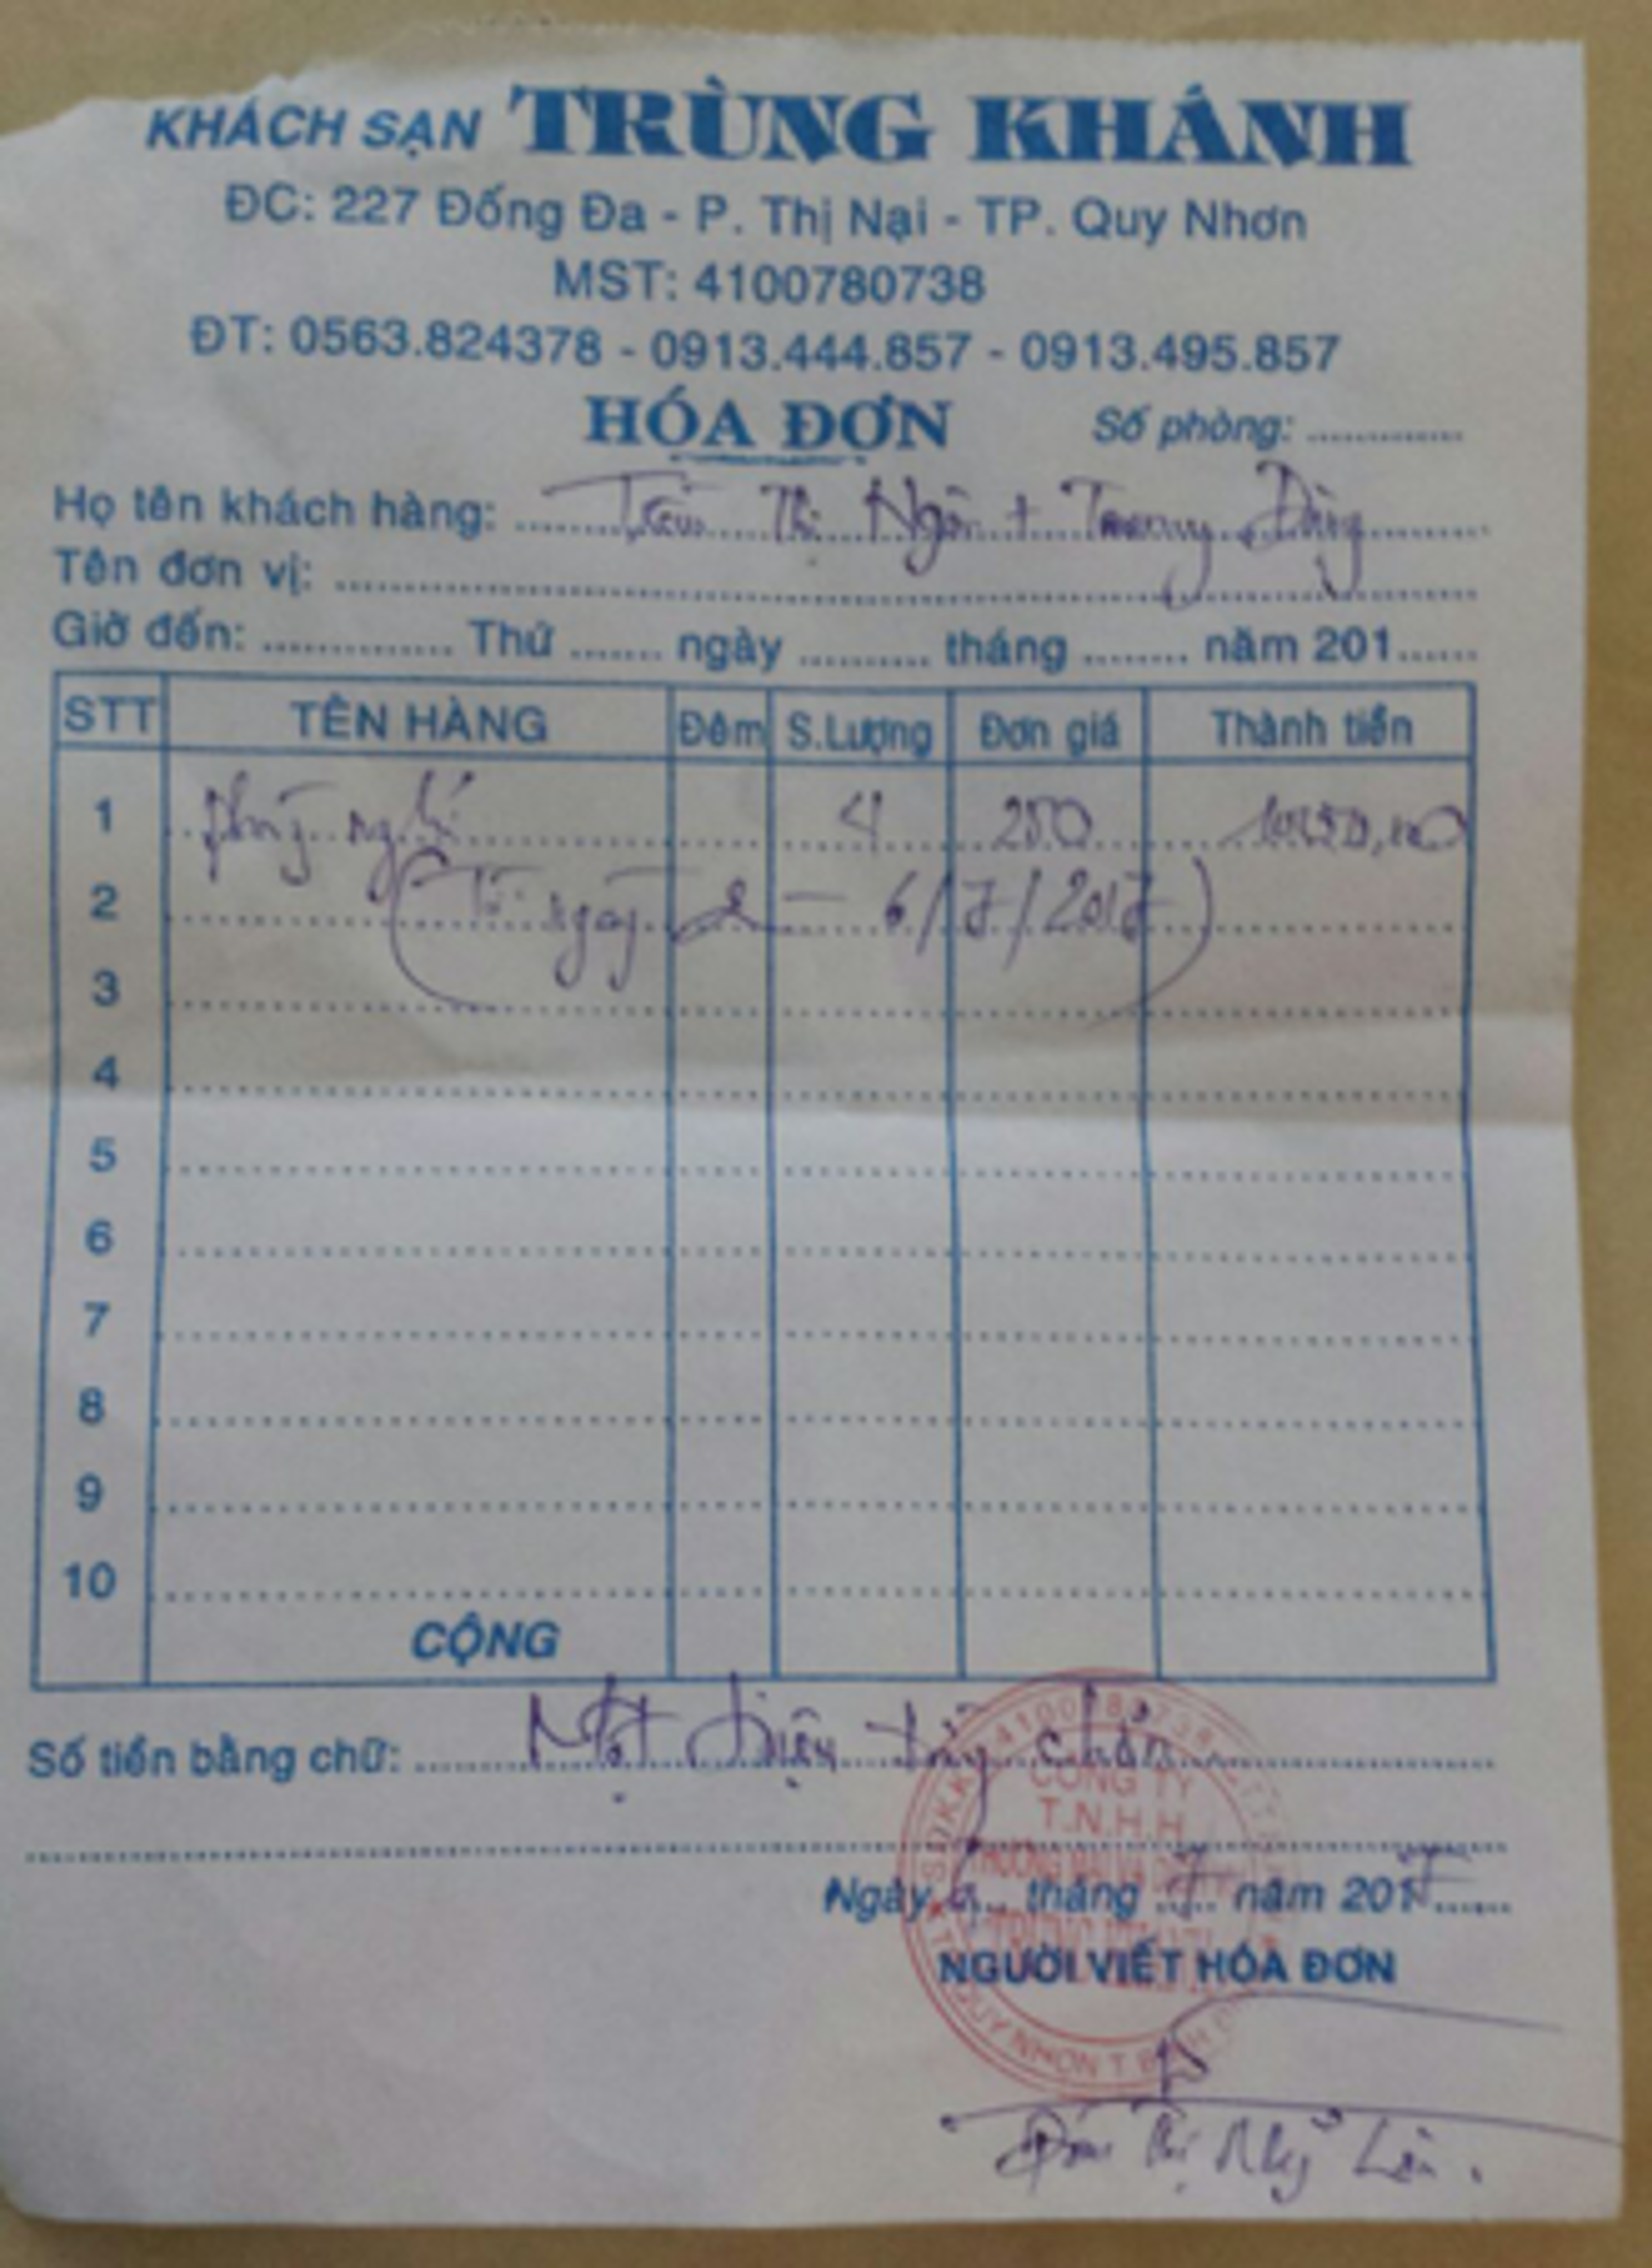 KHÁCH SẠN TRÙNG KHÁNH
ĐC: 227 Đống Đa - P. Thị Nại - TP. Quy Nhơn
MST: 4100780738
ĐT: 0563.824378 - 0913.444.857 - 0913.495.857
HÓA ĐƠN Số phòng:
Họ tên khách hàng: Trần Thị Ngôn + Trung Dũng
Tên đơn vị:
Giờ đến: Thứ ngày tháng năm 201
STT TÊN HÀNG Đêm S.Lượng Đơn giá Thành tiền
1 phòng nghỉ 4 250
2 (Từ ngày 2 - 6/7/2017)
3
4
5
6
7
8
9
10
CỘNG
Số tiền bằng chữ: Một triệu chẵn
Ngày tháng 7 năm 2017
NGƯỜI VIẾT HÓA ĐƠN
CÔNG TY
T.N.H.H
Thị Mỹ